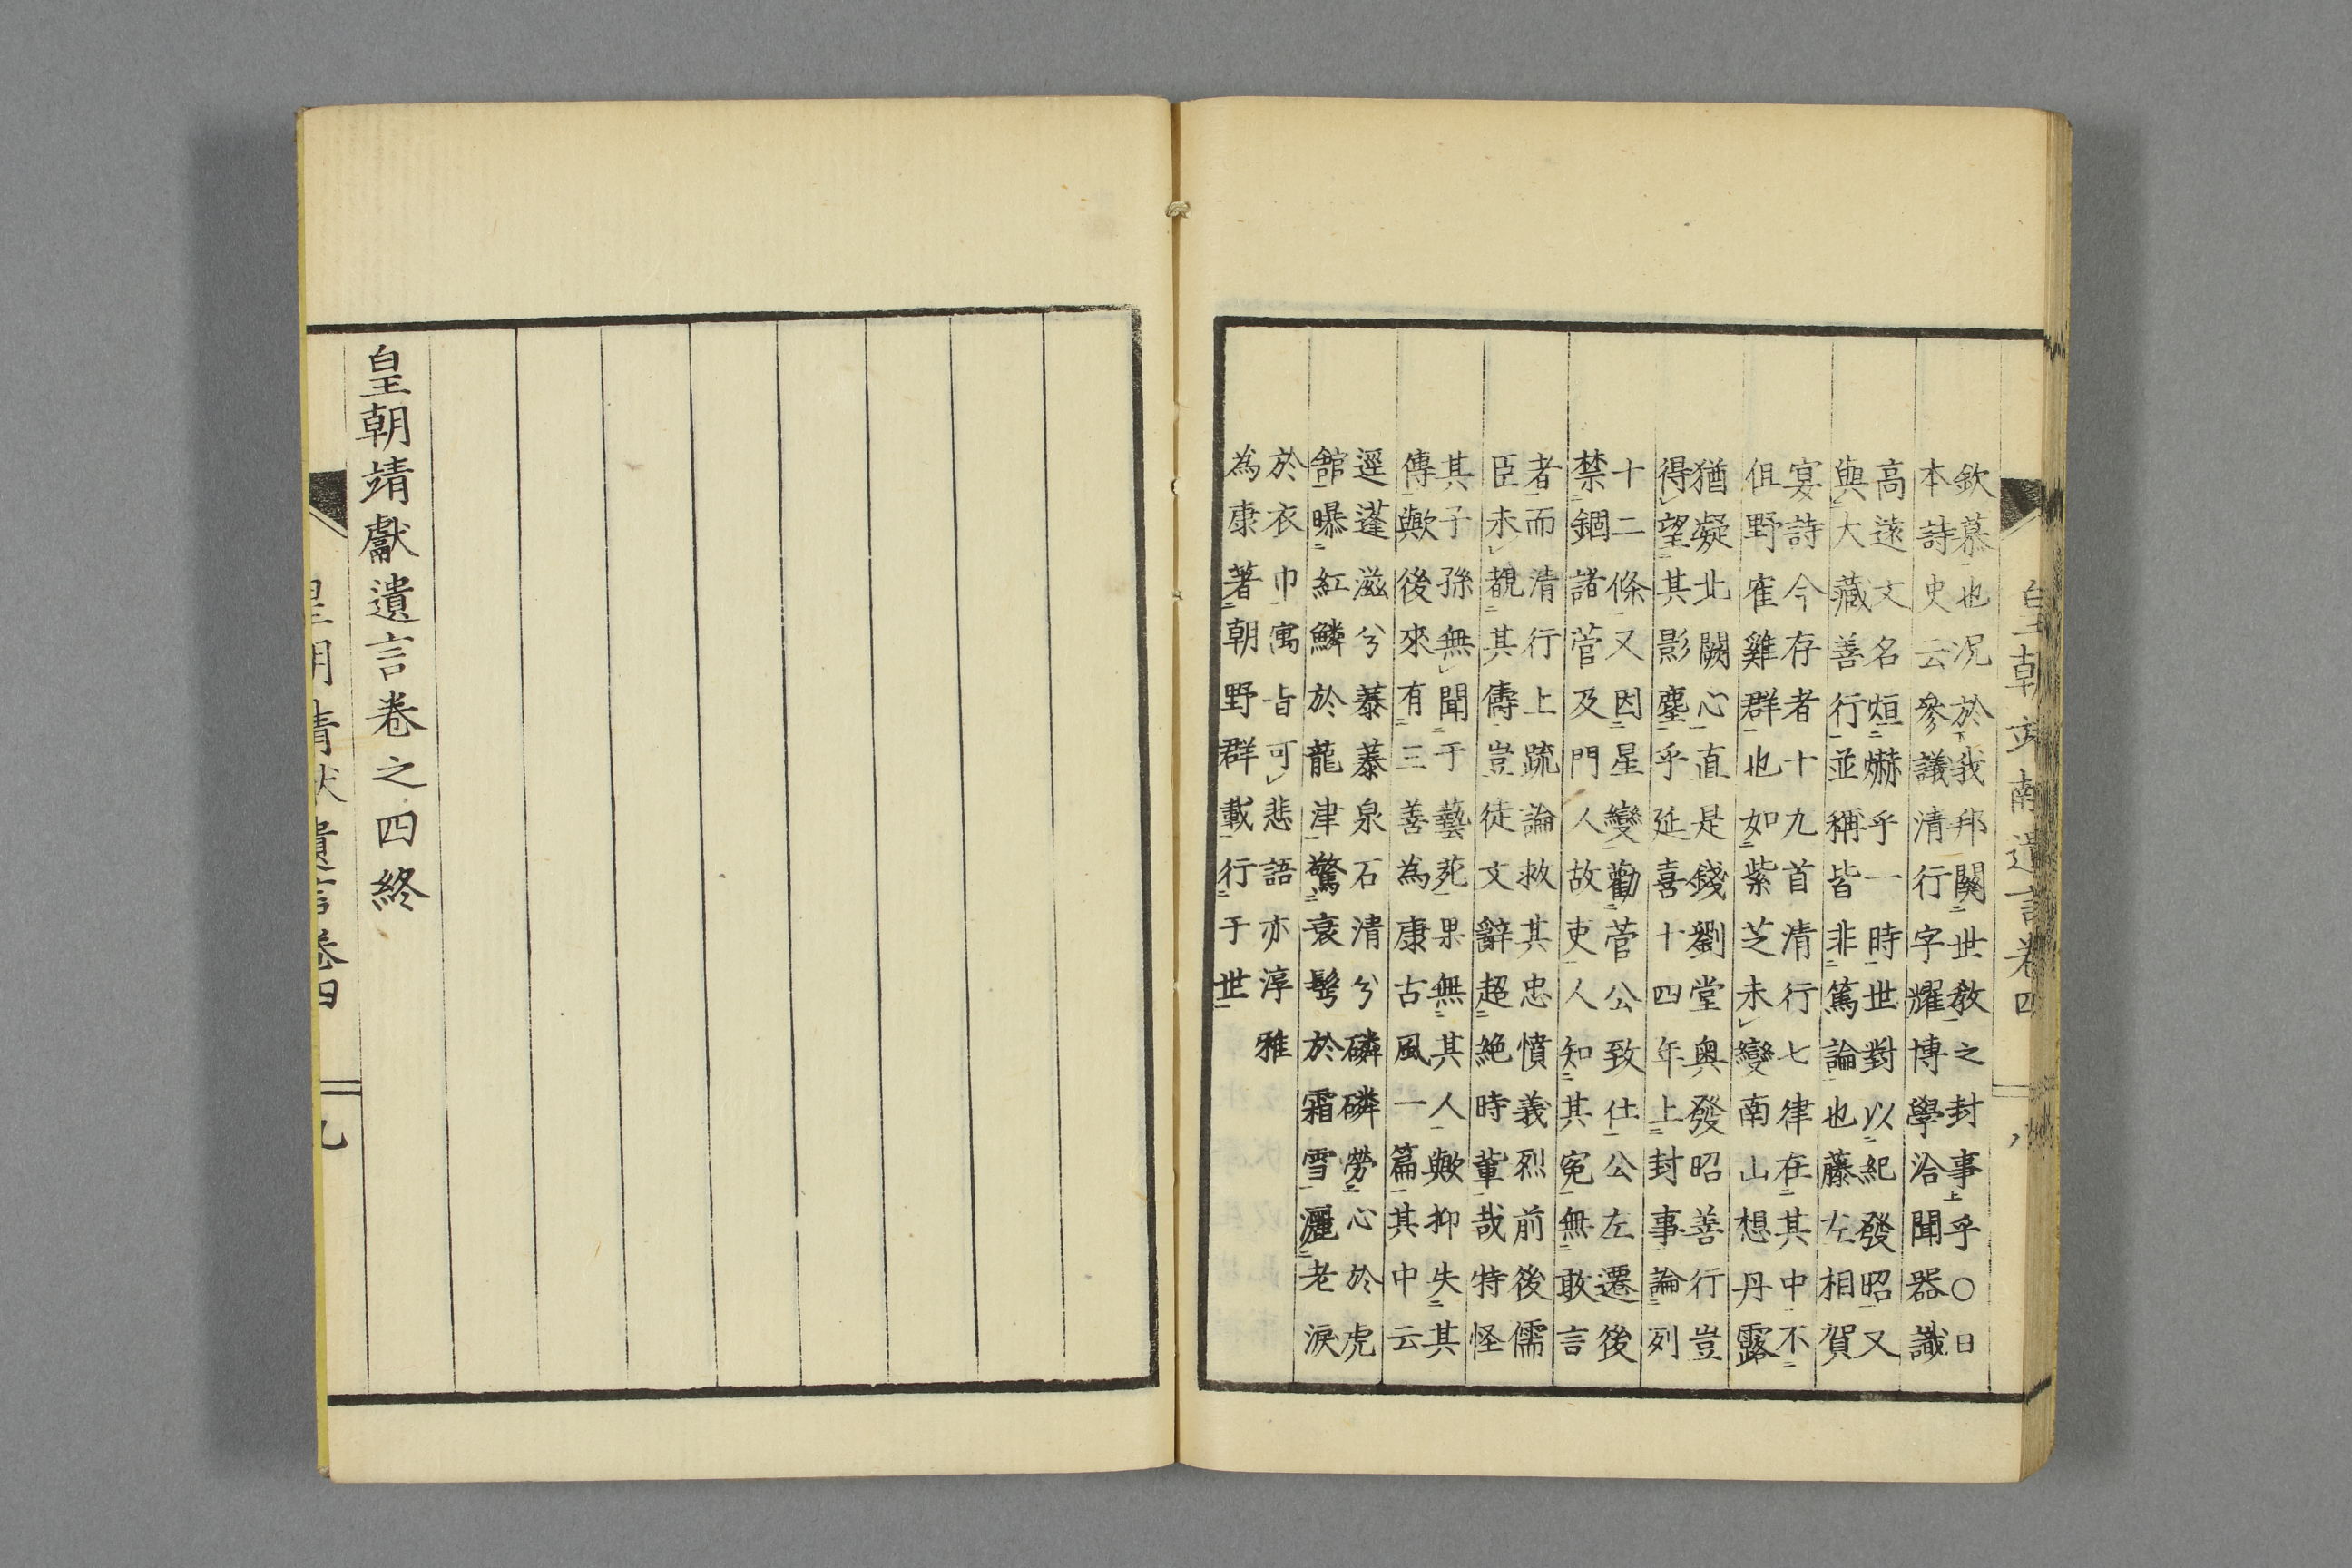 欽慕也況於我邦關世教之封事乎〇日
本詩史云參議清行字耀博學洽聞器識
高遠文名烜嚇乎一時世對以紀發昭又
與大藏善行並稱皆非篤論也藤左相賀
宴詩今存者十九首清行七律在其中不
但野隺雞群也如紫芝未變南山想丹露
猶凝北闕心直是錢劉堂奧發昭善行豈
得望其影塵乎延喜十四年上封事論列
十二條又因星變勸菅公致仕公左遷後
禁錮諸菅及門人故吏人知其冤無敢言
者而清行上疏論救其忠憤義烈前後儒
臣未覩其儔豈徒文辭超絶時輩哉特怪
其子孫無聞于藝苑果無其人歟抑失其
傳歟後來有三善為康古風一篇其中云
逕蓬滋兮蓁蓁泉石清兮磷磷勞心於虎
館曝紅鱗於龍津驚衰髩於霜雪灑老淚
於衣巾寓旨可悲語亦淳雅
為康著朝野群載行于世
皇朝靖獻遺言卷四
皇朝靖獻遺言卷之四終
皇朝靖獻遺言卷四